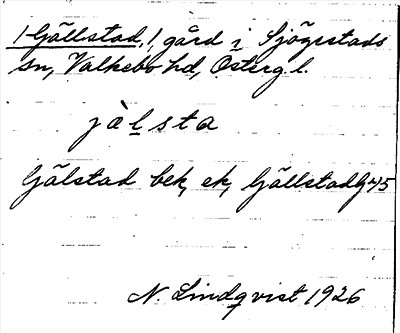 1 Gällstad, 1 gård i Sjögestads
sn, Valkebo hd, Österg.l.
jàlsta
Gälstad bek, ek, Gällstad G45
N. Lindqvist 1926